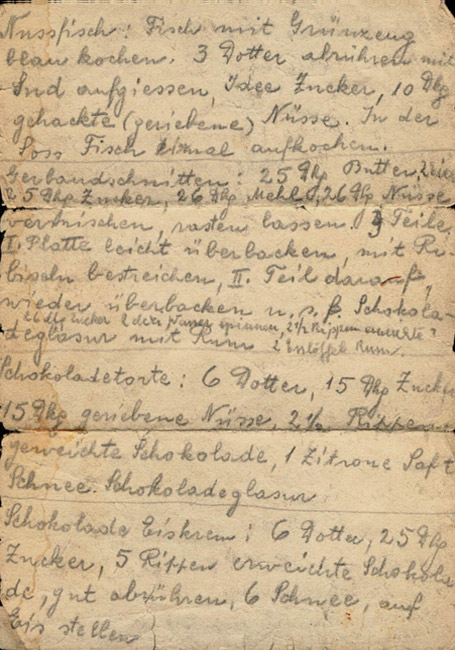 Nussfisch: Fisch mit Grünzeug
blau kochen. 3 Dotter abrühren mit
Sud aufgiessen, Idee Zucker, 10 Dkg
gehackte (geriebene) Nüsse. In der
Soss Fisch einmal aufkochen.
Gerbaudschnitten: 25 Dkg Butter,
25 Dkg Zucker, 26 Dkg Mehl, 26 Dkg Nüsse
vermischen, rasten lassen. 3 Teile
I. Platte leicht überbacken, mit Ri-
biseln bestreichen, II. Teil darauf,
wieder überbacken u. s. f. Schokola-
26 dkg Zucker 2 dezi Wasser spinnen, 2½ Rippen erweichte
deglasur mit Rum 2 Esslöffel Rum.
Schokoladetorte: 6 Dotter, 15 Dkg Zucker
15 Dkg geriebene Nüsse, 2½ Rippen
geweichte Schokolade, 1 Zitrone Saft
Schnee. Schokoladeglasur
Schokolade Eiskrem: 6 Dotter, 25 Dkg
Zucker, 5 Rippen erweichte Schokola
de, gut abrühren, 6 Schnee, auf
Eis stellen